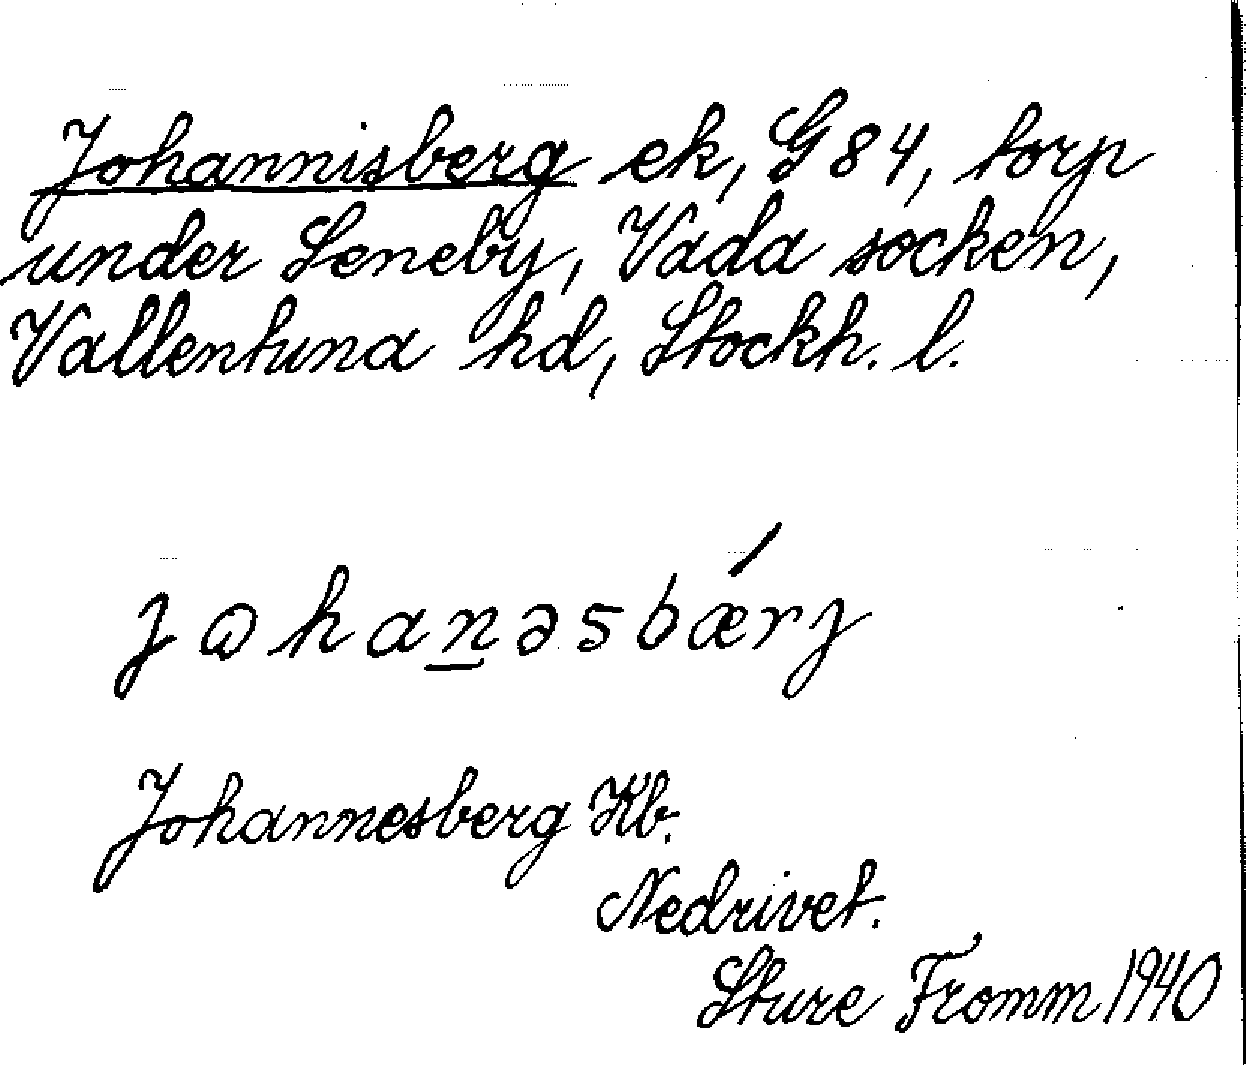 Johannisberg ek, G 84, torp
under Seneby, Vada socken,
Vallentuna hd, Stockh. l.
jωhanəsbǽrj
Johannesberg Kb.
Nedrivet.
Sture Fromm 1940